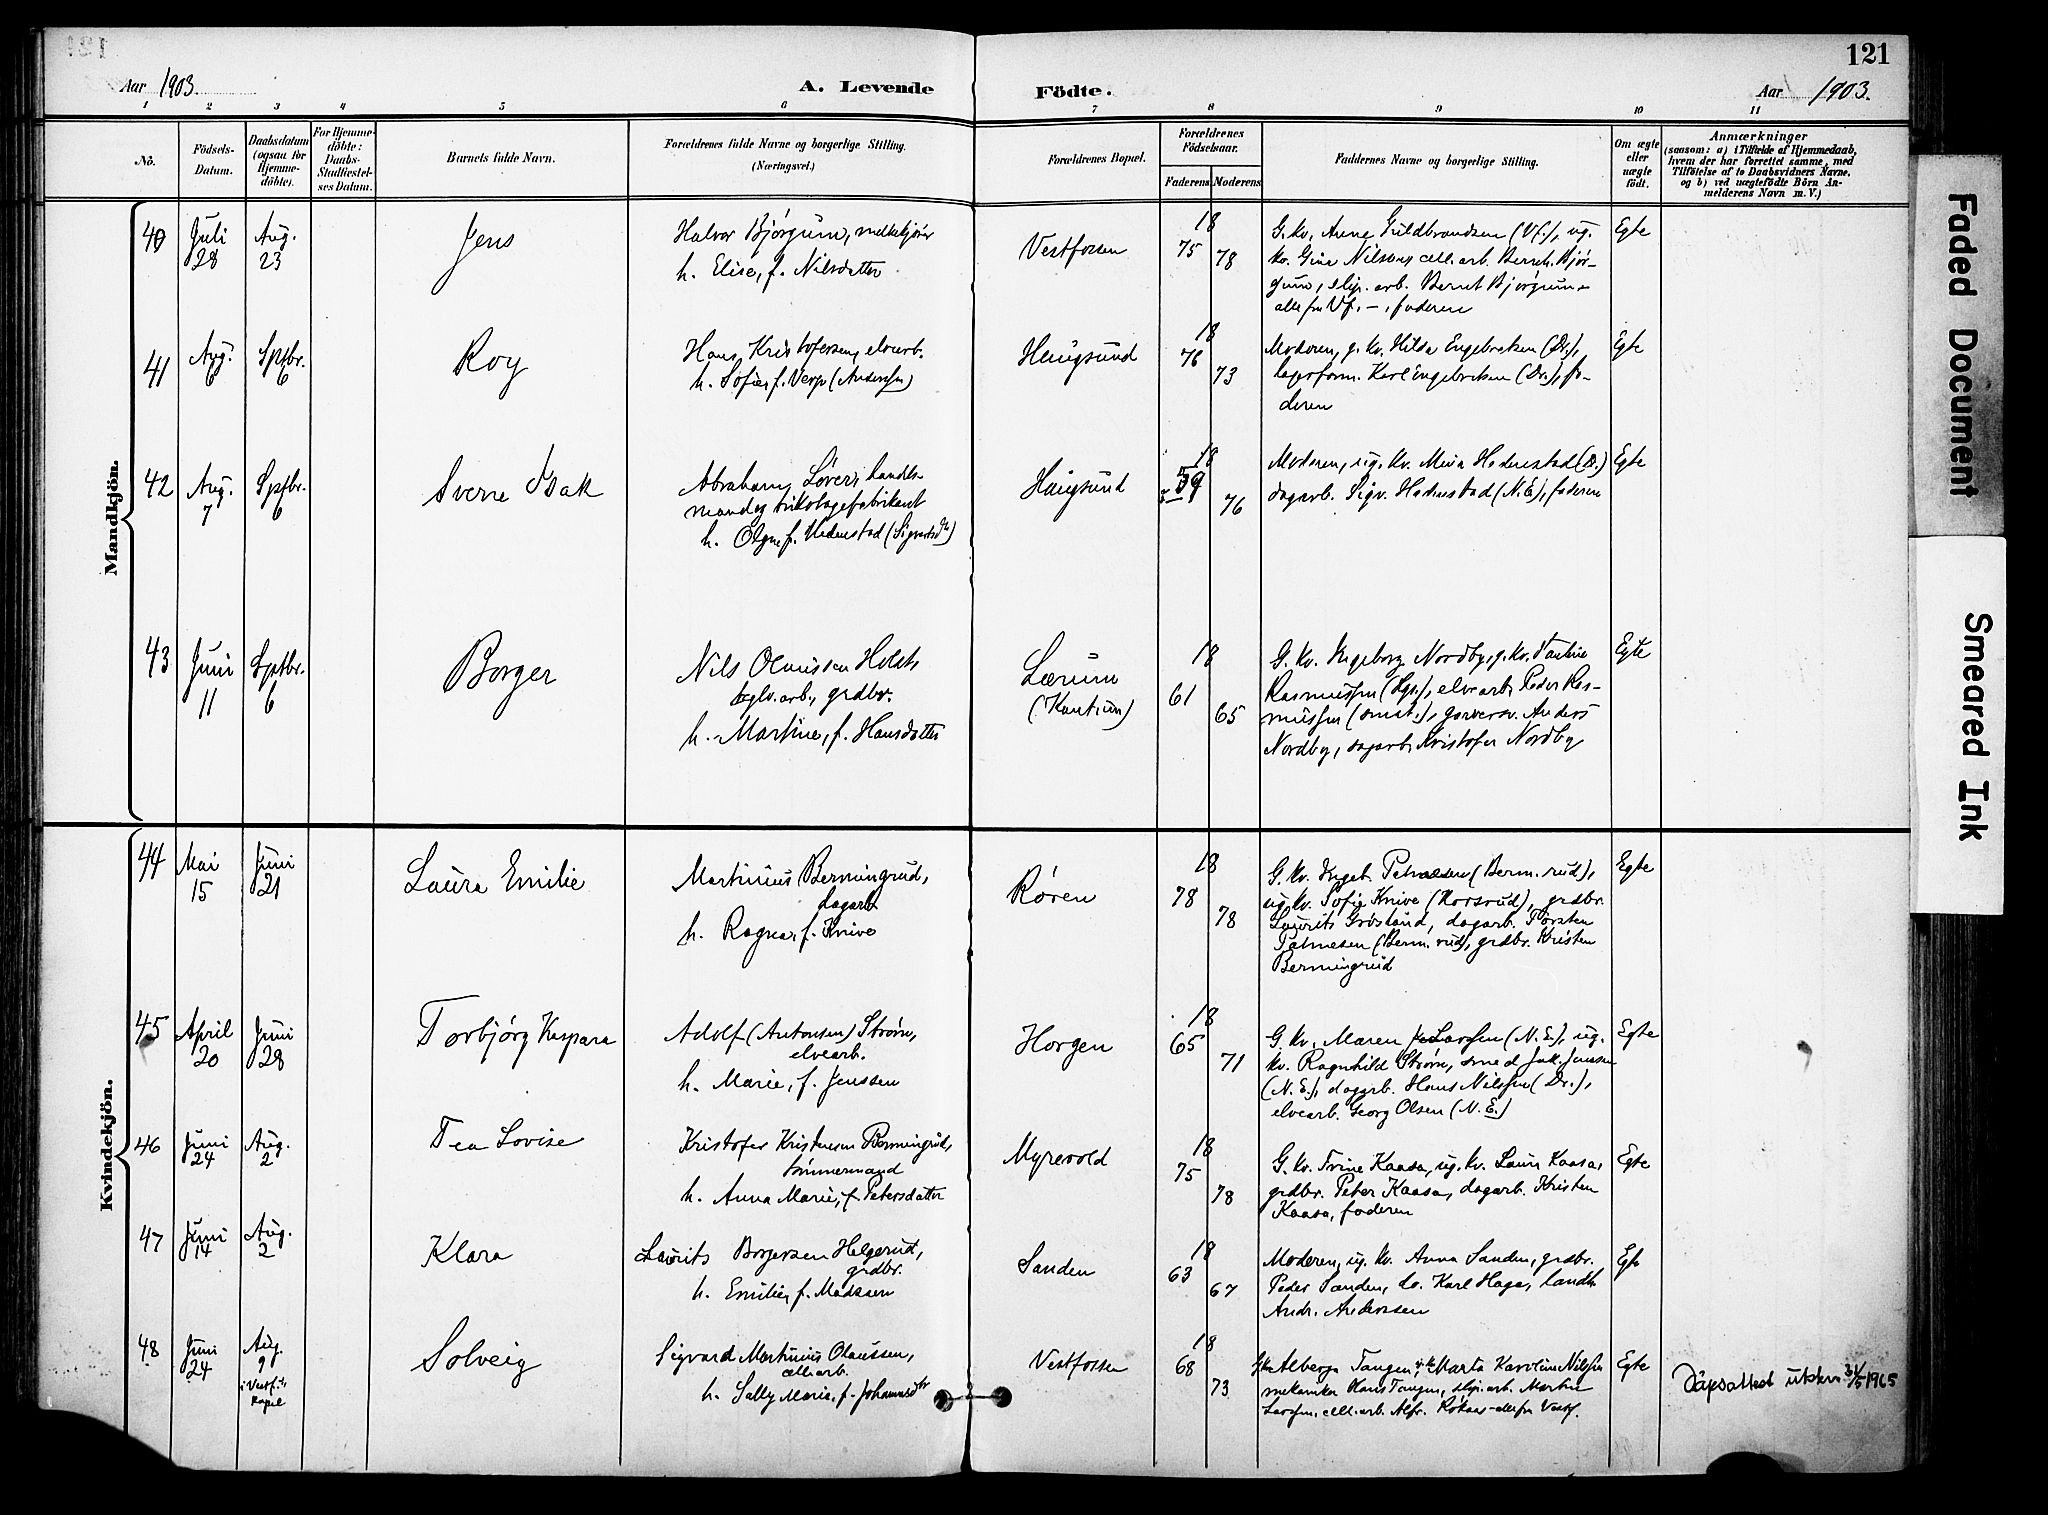 121
Aar 1903.
A. Levende Födte.
Aar 1903.
1 2 3 4 5 6 7 8 9 10 11
No.
Födsels-
Datum.
Daabsdatum
(ogsaa for
Hjemme-
döbte).
For Hjemme-
döbte:
Daabs-
Stadfæstel-
ses Datum.
Barnets fulde Navn.
Forældrenes fulde Navne og borgerlige Stilling.
(Næringsvei.)
Forældrenes Bopæl.
Forældrenes
Födselsaar.
Faderens Moderens
Faddernes Navne og borgerlige Stilling.
Om ægte
eller
uægte
födt.
Anmærkninger
(saasom: a) i Tilfælde af Hjemmedaab,
hvem der har forrettet samme, med
Tilföielse af to Daabsvidners Navne,
og b) ved uægtefödte Börn An-
melderens Navn m. V.)
Mandkjön.
40
Juli
28
Aug.
23
Jens
Halvor Bjørgum,
h. Elise, f. Nilsdatter
Vestfossen
18
75
78
G. kv. Anne Guldbrandsen (Vf.), ug.
kv. Gina Nilsen, cell. arb. Bernh. Bjør-
gum, slip. arb. Bernt Bjørgum -
alle fra Vf. -, faderen
Egte
41
Aug.
6
Sptbr.
6
Roy
Hans Kristofersen, elvearb.
h. Sofie, f. Verp (Anderssen)
Haugsund
18
76
73
Moderen, g. kv. Hilda Engebretsen (Dr.),
lagerform. Karl Engebretsen (Dr.), fa-
deren
Egte
42
Aug.
7
Sptbr.
6
Sverre Isak
Abraham Løver, handels-
mand og trikotagefabrikant
h. Olga, f. Hedenstad (Sigvartsdtr)
Haugsund
18
59
76
Moderen, ug. kv. Mina Hedenstad (D.)
dagarb. Sigv. Hedenstad (N.E.), faderen
Egte
43
Juni
11
Sptbr.
6
Borger
Nils Olaussen Holst,
teglv. arb., grdbr.
h. Martine, f. Hansdatter
Lærum
18
61
65
G. kv. Ingeborg Nordby, g. kv. Pauline
Rasmussen, elvearb. Peder Ras-
mussen, garversv. Anders
Nordby, dagarb. Kristofer Nordby
Egte
Kvindekjön.
44
Mai
15
Juni
21
Laura Emilie
Martinius Bermingrud,
dagarb.
h. Ragna, f. Knive
Røren
18
78
78
G. kv. Ingeb. (Berm. rud),
ug. kv. Sofie Knive (Korsrud), grdbr.
Laurits Grøsland, dagarb. Torsten
(Berm. rud), grdbr. Kristen
Bermingrud
Egte
45
April
20
Juni
28
Torbjørg Kaspara
Adolf (Antonsen) Strøm,
elvearb.
h. Marie, f. Jenssen
Horgen
18
65
71
G. kv. Maren Larssen (N. E.), ug.
kv. Ragnhild Strøm, smed Jak. Jenssen
(N. E.), dagarb. Hans Nilssen (Dr.),
elvearb. Georg Olsen (N. E.)
Egte
46
Juni
24
Aug.
2
Tea Lovise
Kristofer Kristensen Bermingrud,
tømmermand
h. Anna Marie, f. Petersdatter
Myrevold
18
75
78
G. kv. Trine Kaasa, ug. kv. Laura Kaasa,
grdbr. Peter Kaasa, dagarb. Kristen
Kaasa, faderen
Egte
47
Juni
14
Aug.
2
Klara
Laurits Borgersen Helgerud,
grdbr.
h. Emilie, f. Madssen
Sanden
18
63
67
Moderen, ug. kv. Anna Sanden, grdbr.
Peder Sanden, do. Karl Haga, landh.
Andr. Anderssen
Egte
48
Juni
24
Aug.
9
i Vestf.
kapel
Solveig
Sigvard Martinius Olaussen,
cell. arb.
h. Sally Marie, f. Johannsdtr
Vestfossen
18
68
73
Alberga Tangen, Marta Karoline Nilssen
mekaniker Hans Tangen, slip. arb. Martin
Larssen, cell. arb. Alfr. Kokaas - alle fra Vestf.
Egte
Dåpsattest utskr. 31/5 1965
Faded Document
Smeared Ink